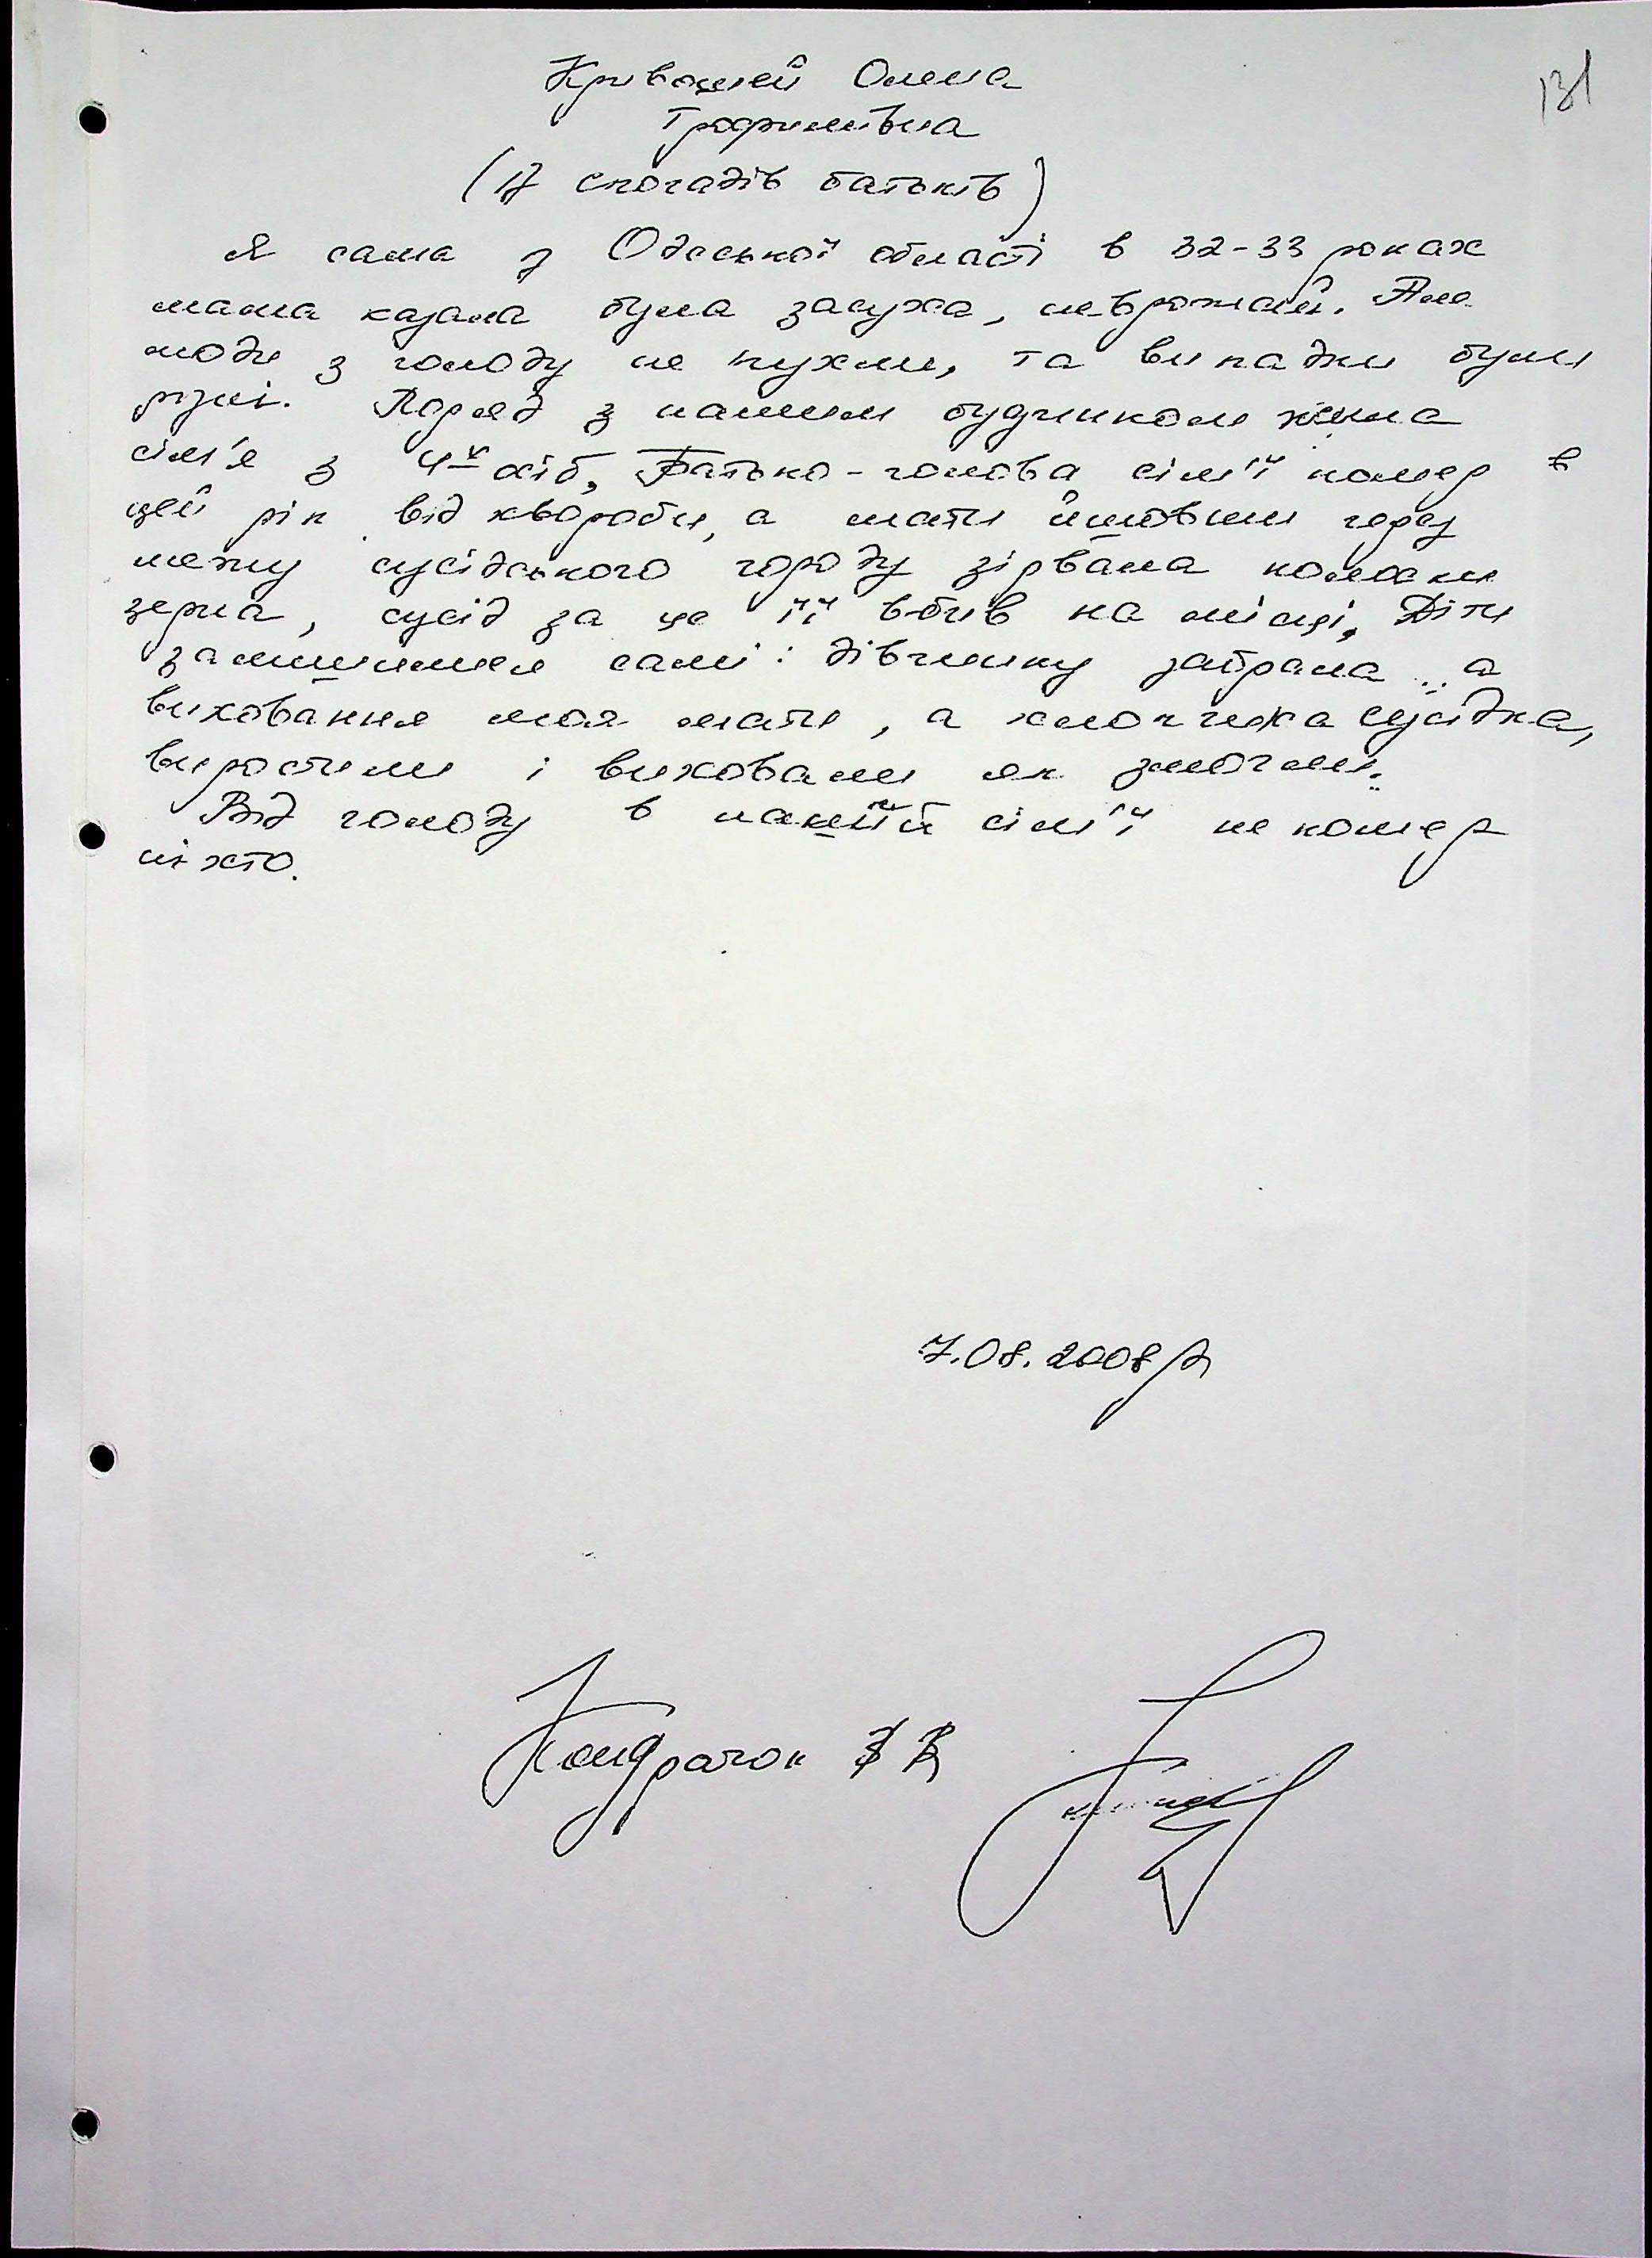 131
Кривошей Олена
Трофимівна
(із спогадів батьків)
Я сама з Одеської області в 32-33 роках
мама казала була засуха, неврожай. Але
люди з голоду не пухли, та випадки були
різні. Поряд з нашим будинком жила
сім'я з 4х осіб, Батько - голова сім'ї помер в
цей рік від хвороби, а мати йшовши через
межу сусідського городу зірвала колоски
зерна, сусід за це її вбив на місці, Діти
залишилися самі: дівчинку забрала на
виховання моя мати, а хлопчика сусідка,
виростили і виховали як змогли.
Від голоду в нашій сім'ї не помер
ніхто.
7.08.2008р
Кондратюк